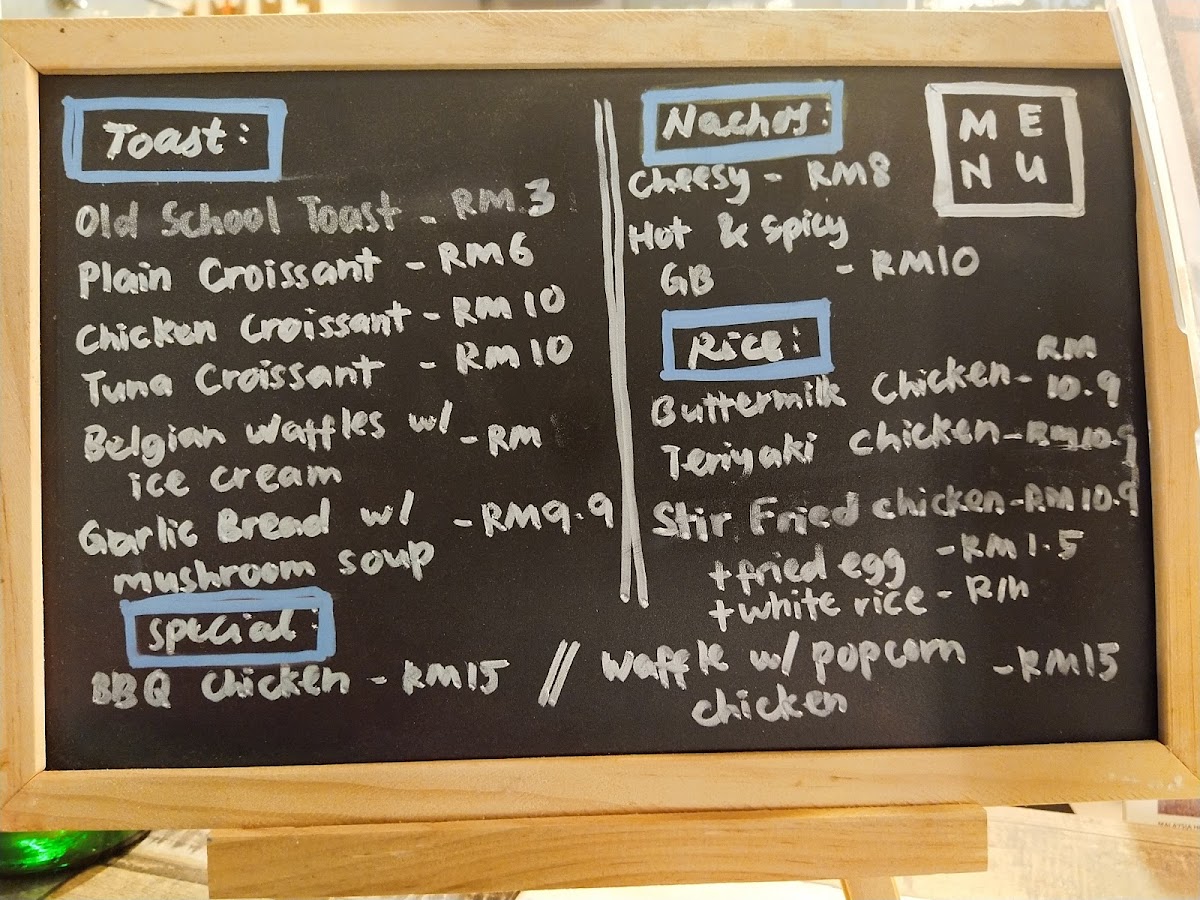 Toast:
Old School Toast - RM.3
Plain Croissant - RM6
Chicken Croissant - RM 10
Tuna Croissant - RM 10
Belgian Waffles w/ - RM
ice cream
Garlic Bread w/ - RM9.9
mushroom soup
Special:
BBQ chicken - RM15 //
Nachos:
ME
NU
Cheesy - RM8
Hot & Spicy
GB - RM10
Rice:
Buttermilk Chicken - RM 10.9
Teriyaki chicken - RM10.9
Stir Fried chicken - RM10.9
+ fried egg - RM1.5
+ white rice -
Waffle w/ popcorn - RM15
chicken